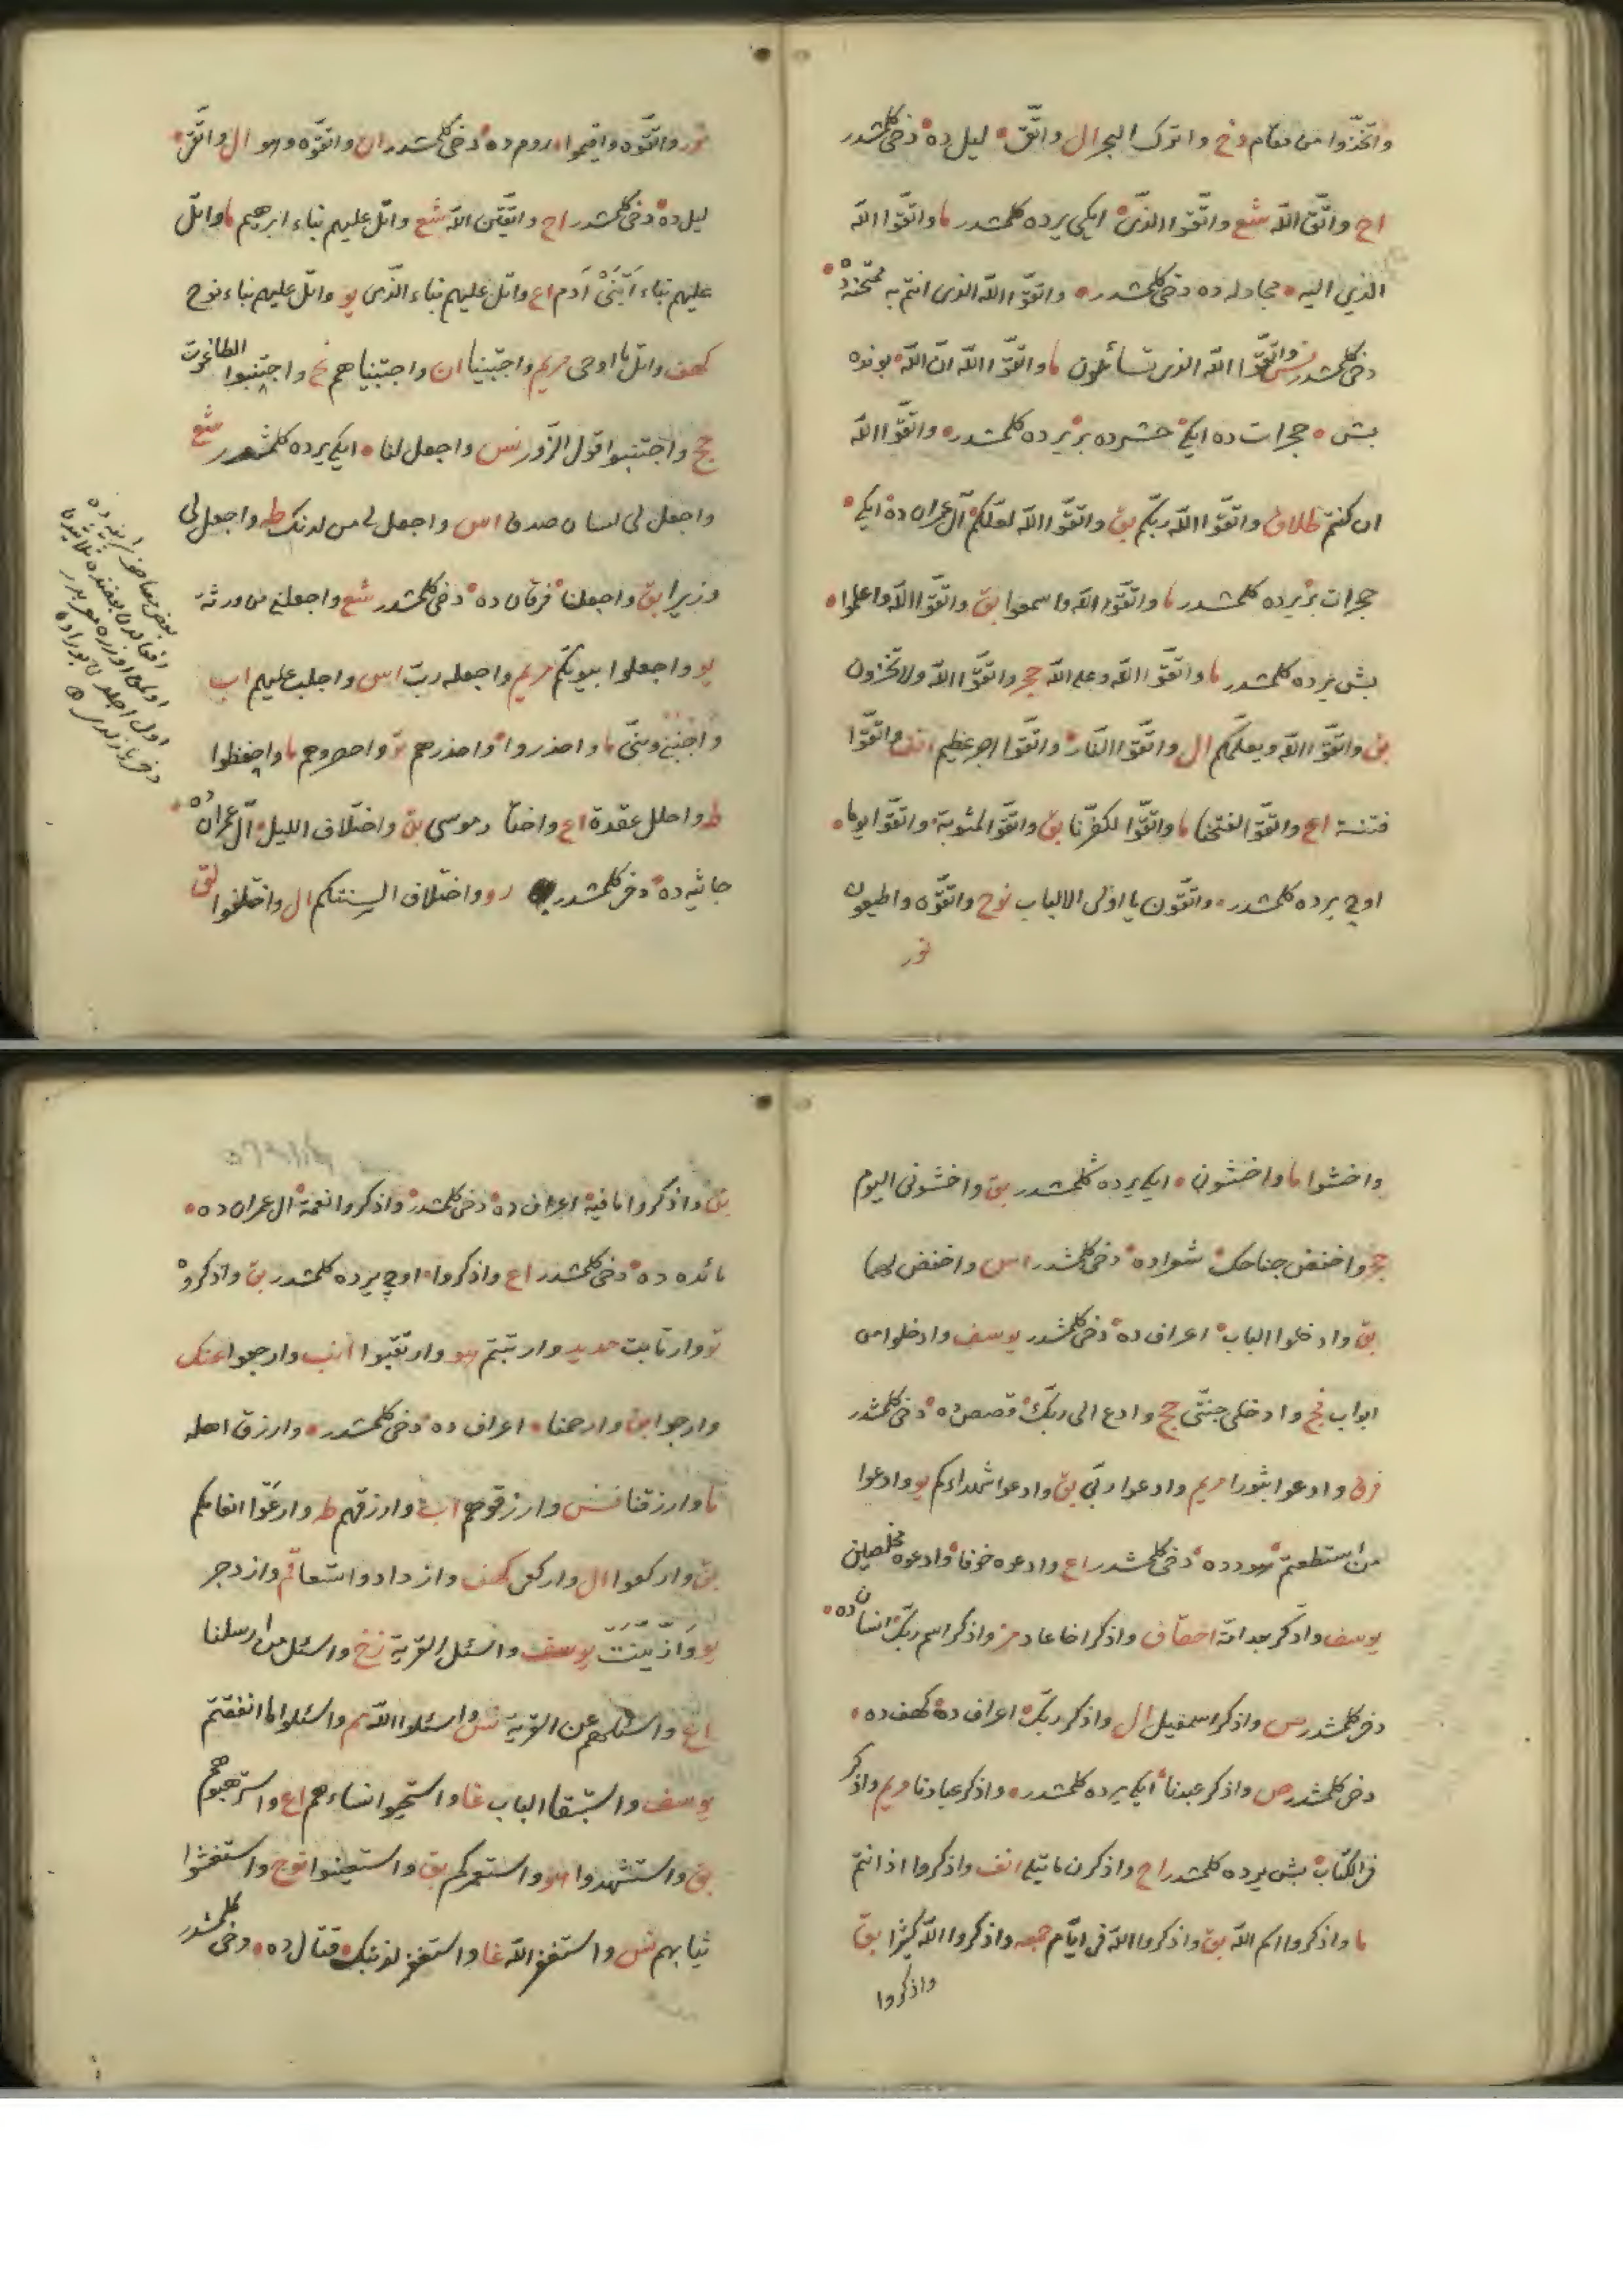 واتخذوا من مقام دخ واترك البحر ال واتق ليل ده دخى كلمشدر
اح واتق الله شع واتقوا الذى ايكى يرده كلمشدر ما واتقوا الله
الذى اليه مجادله ده دخى كلمشدر واتقوا الله الذى انتم به ممتحنه ده
دخى كلمشدر نس واتقوا الله الذى تسائلون ما واتقوا الله ان الله بونده
بش حجرات ده ايكى حشرده بر يرده كلمشدر واتقوا الله
ان كنتم طلاق واتقوا الله ربكم بق واتقوا الله لعلكم آل عمران ده ايكى
حجرات بر يرده كلمشدر ما واتقوا الله واسمعوا بق واتقوا الله واعلموا
بش يرده كلمشدر ما واتقوا الله وعلى الله حجر واتقوا الله ولا تخزون
بق واتقوا الله ويعلمكم ال واتقوا النار واتقوا اجر عظيم انف واتقوا
فتنة اع واتقوا لفتحنا ما واتقوا لكفرنا بق واتقوا لمثوبة واتقوا يوما
اوچ يرده كلمشدر واتقون يا اولى الالباب نوح واتقوه واطيعون
نور
نور واتقوه واقيموا روم ده دخى كلمشدر ان واتقوه وهو ال واتقى
ليل ده دخى كلمشدر اح واتقين الله شع واتل عليهم نباء ابرهيم ما واتل
عليهم نباء ابنى آدم اع واتل عليهم نباء الذى يو واتل عليهم نباء نوح
كهف واتل ما اوحى مريم واجتبينا ان واجتبيناهم نح واجتنبوا الطاغوت
حج واجتنبوا قول الزور نس واجعل لنا ايكى يرده كلمشدر شع
واجعل لى لسان صدق اس واجعل لى من لدنك طه واجعل لى
وزيرا بق واجعلنا فرقان ده دخى كلمشدر شع واجعلنى من ورثة
يو واجعلوا بيوتكم مريم واجعله رب اس واجلب عليهم اب
واجنبنى وبنى ما واحذروا واحذرهم تو واحصروهم ما واحفظوا
طه واحلل عقدة اع واختار موسى بق واختلاف الليل آل عمران ده
جاثيه ده دخى كلمشدر رو واختلاف السنتكم ال واختلفوا لق
واخشوا ما واخشون ايكى يرده كلمشدر بق واخشونى اليوم
حجر واخفض جناحك شعراده دخى كلمشدر اس واخفض لهما
بق وادخلوا الباب اعراف ده دخى كلمشدر يوسف وادخلوا من
ابواب فج وادخلى جنتى حج وادع الى ربك قصص ده دخى كلمشدر
فرق وادعوا ثبورا مريم وادعوا ربى بق وادعوا شهداءكم يو وادعوا
من استطعتم هودده دخى كلمشدر اع وادعوه خوفا وادعوه مخلصين
يوسف وادكر بعد امة احقاف واذكر اخا عاد مز واذكر اسم ربك انسان ده
دخى كلمشدر ص واذكر اسمعيل ال واذكر ربك اعراف ده كهف ده
دخى كلمشدر ص واذكر عبدنا ايكى يرده كلمشدر واذكر عبادنا مريم واذكر
فى الكتاب بش يرده كلمشدر اح واذكرن ما يتلى انف واذكروا اذ انتم
ما واذكروا اسم الله بق واذكروا الله فى ايام جمعه واذكروا الله كثيرا بق
واذكروا
بق واذكروا ما فيه اعراف ده دخى كلمشدر واذكروا نعمة آل عمران ده
مائده ده دخى كلمشدر اع واذكروا اوچ يرده كلمشدر بق واذكروه
تو وارتابت حديد وارتبتم هو وارتقبوا انب وارجعوا عنك
وارجوا بق وارحمنا اعراف ده دخى كلمشدر وارزق اهله
ما وارزقنا نس وارزقوهم اب وارزقهم طه وارعوا انعامكم
بق واركعوا ال واركعى كهف وازدادوا تسعا قم وازدجر
يو وازينت يوسف واسئل القرية زخ واسئل من ارسلنا
اع واسئلهم عن القرية نس واسئلوا الله مم واسئلوا ما انفقتم
يوسف واستبقا الباب غا واستحيوا نساءهم اع واسترهبوهم
بق واستشهدوا هو واستعمركم بق واستعينوا نوح واستغشوا
ثيابهم نس واستغفر الله غا واستغفر لذنبك قتال ده دخى كلمشدر